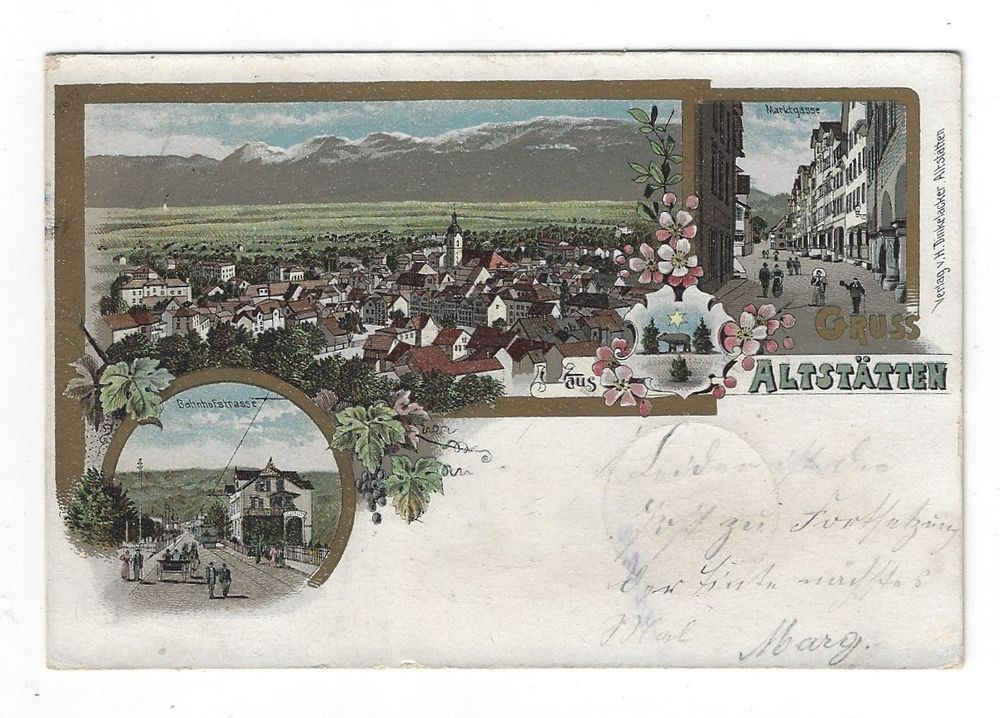 Marktgasse
Verlag v. H. Dinkelacker, Altstätten
GRUSS
aus
ALTSTÄTTEN
Bahnhofstrasse
Leider ist die
zu Fortsetzung
der nächstes
Mal
Marg.